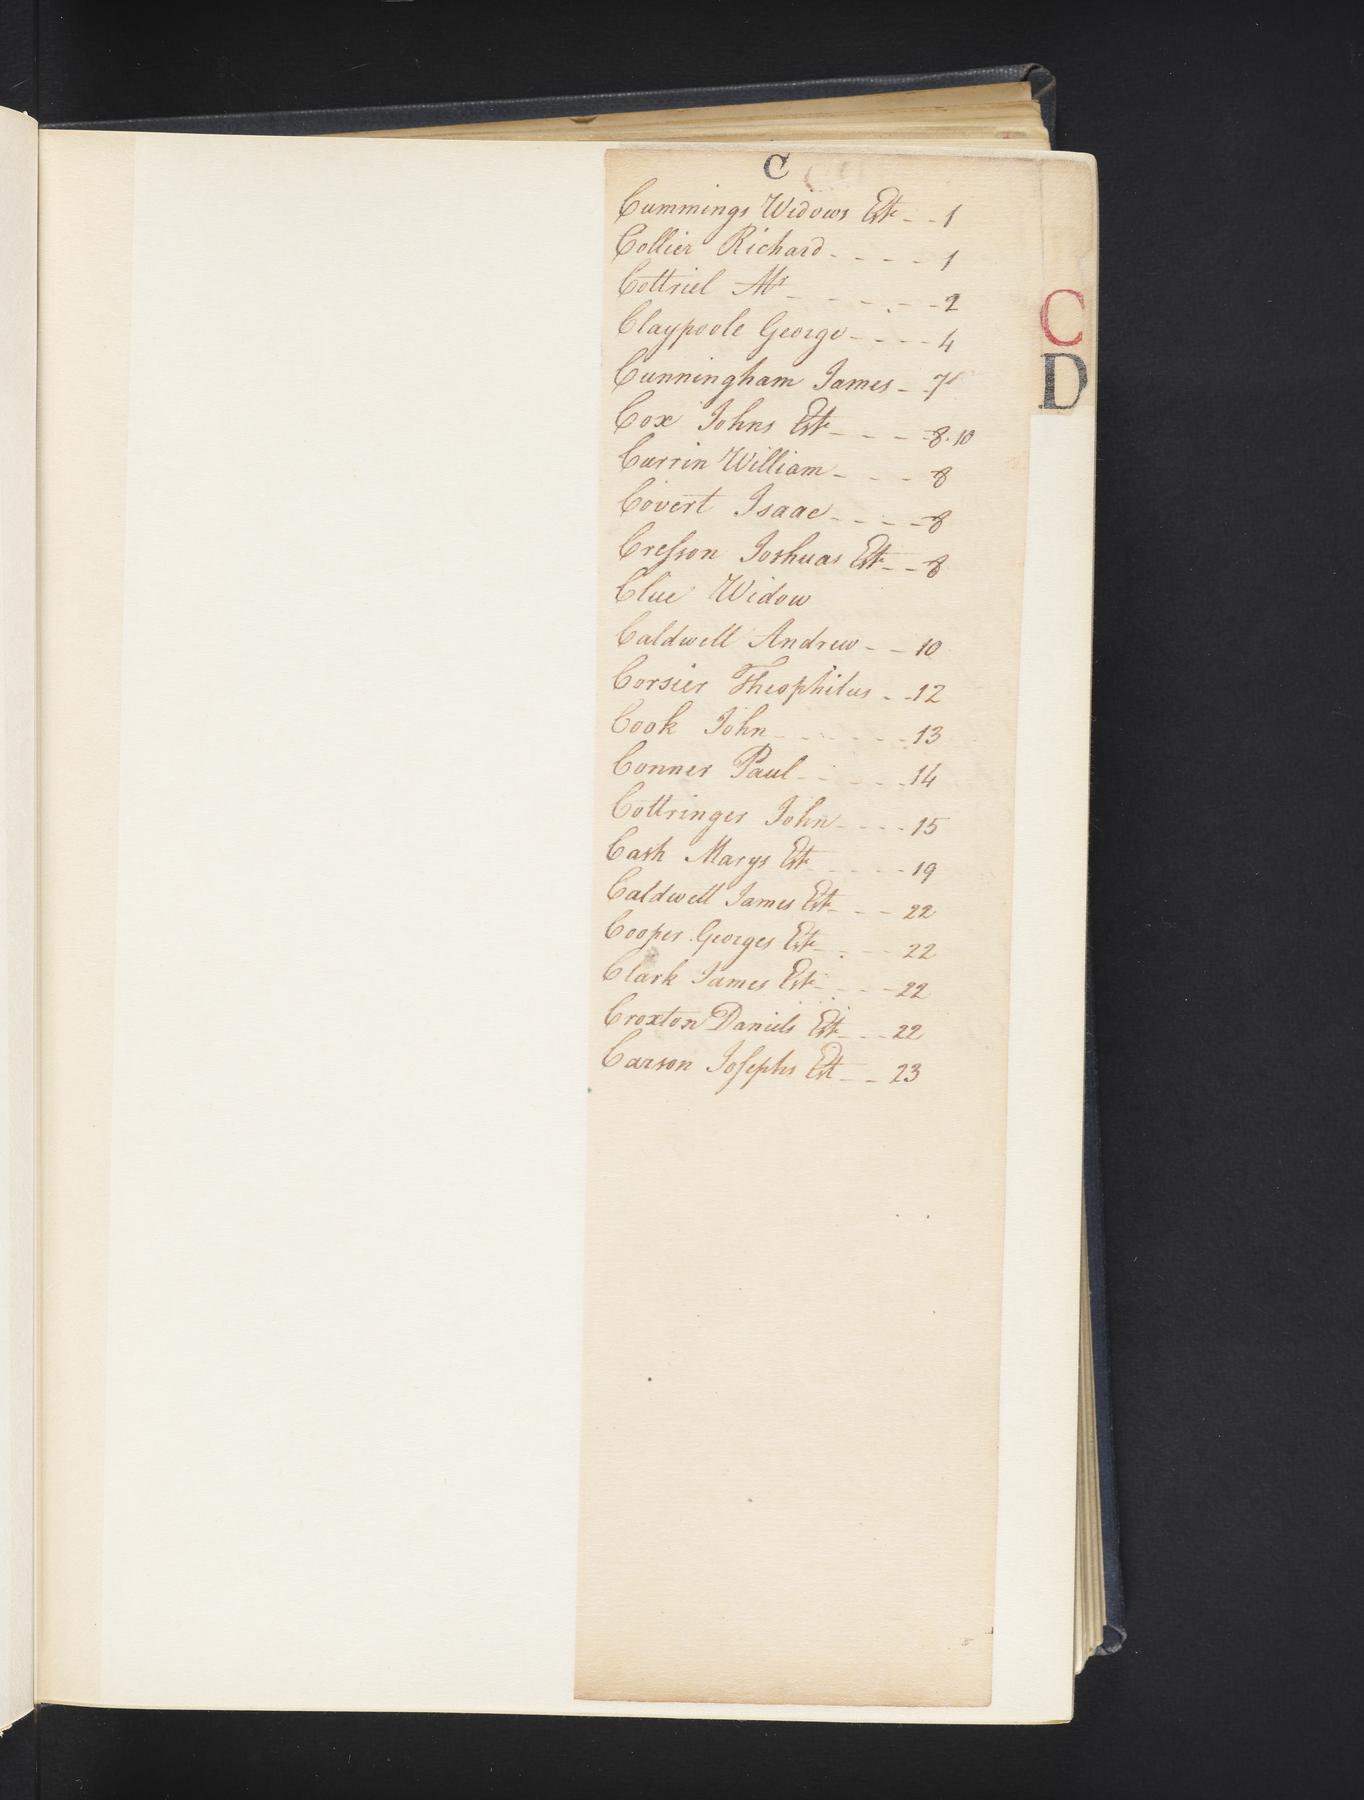 C
Cummings Widows Est -- 1
Collier Richard - - - - 1
Cottriel Mr - - - - - 2
Claypoole George - - - - 4
Cunningham James - 7
Cox Johns Est - - - - 8.10
Currin William - - - - 8
Covert Isaac - - - - 8
Cresson Joshuas Est - - 8
Clue Widow
Caldwell Andrew - - 10
Corsier Theophilus - - 12
Cook John - - - - - - 13
Conner Paul - - - - - 14
Cottringer John - - - - 15
Cash Marys Est - - - - - 19
Caldwell James Est - - - 22
Cooper Georges Est - - - - 22
Clark James Est - - - - 22
Croxton Daniels Est - - - 22
Carson Josephs Est - - 23
C
D